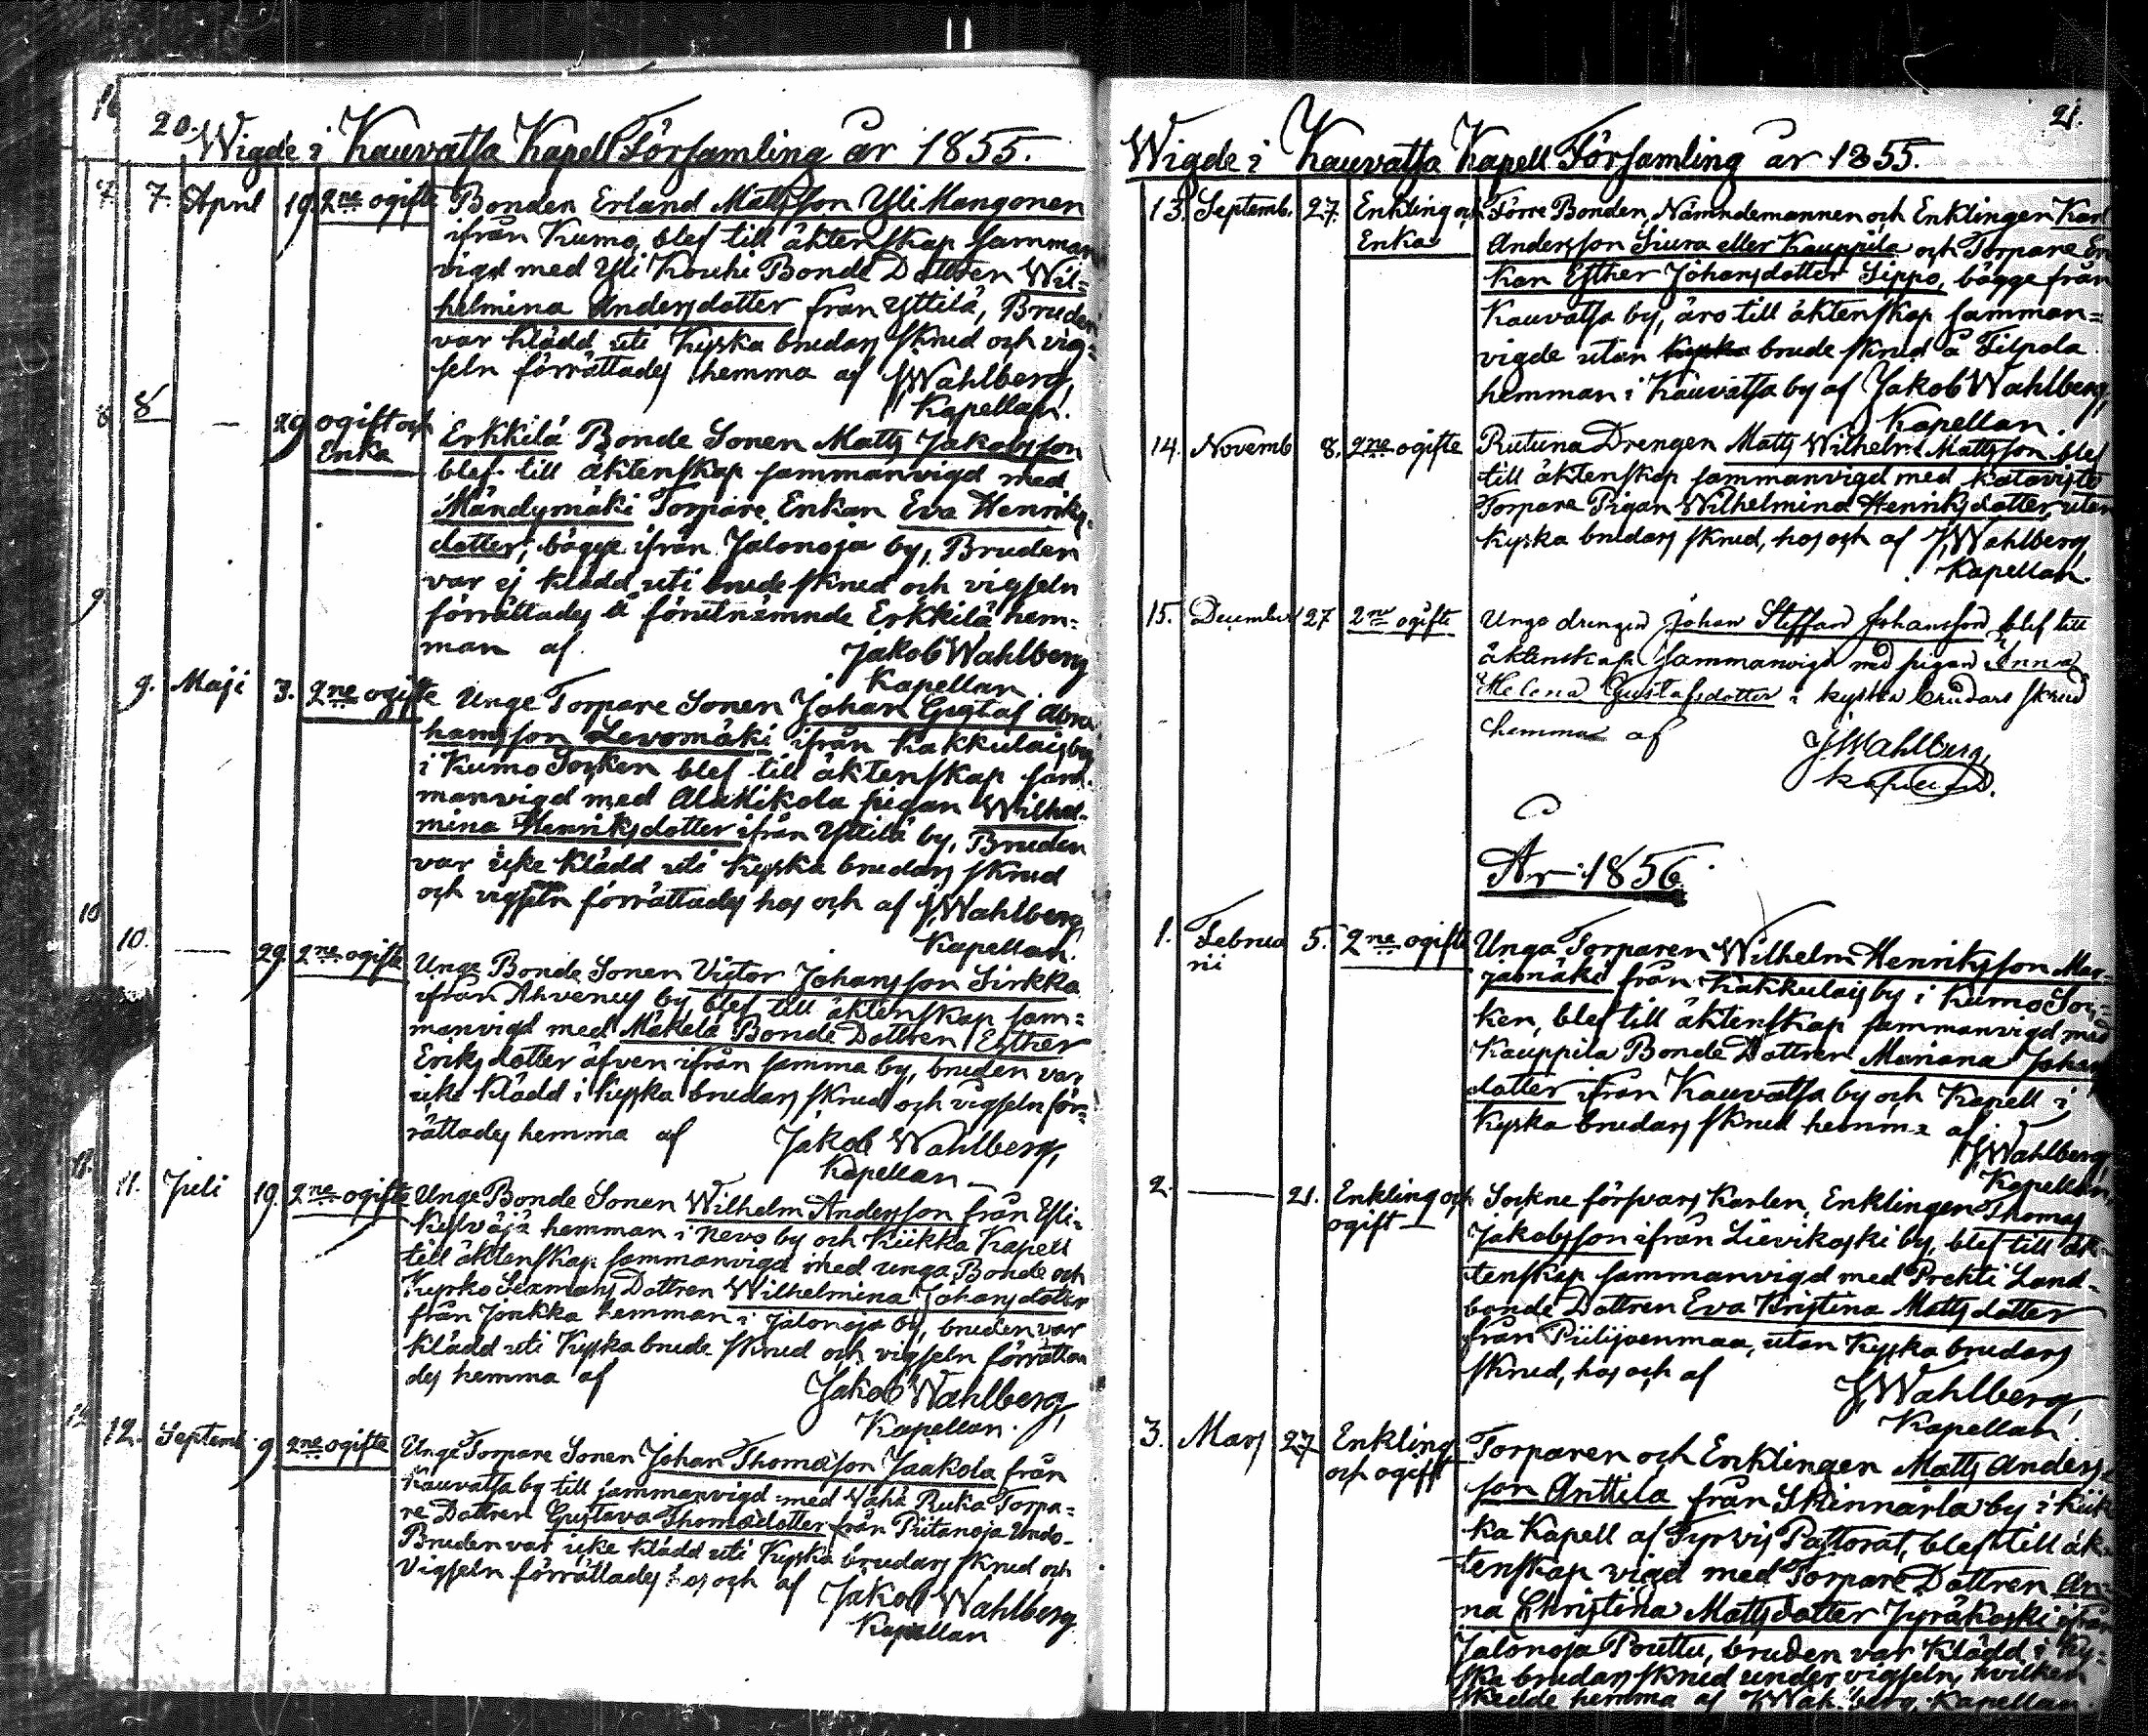 20.
Wigde i Kauvatsa Kapell Församling år 1855.
7. April 19. 2ne ogifte Bonden Erland Mattsson Yli Mangonen
ifrån Kumo, blef till äktenskap samman
vigd med Yli Kouhi Bonde Dottren Wil=
helmina Andersdotter från Yttilä, Bruden
var klädd uti Kyska brudars skrud och vig=
seln förrättades hemma af JWahlberg,
Kapellan.
8 — 29 ogift och Enka Erkkilä Bonde Sonen Matts Jakobsson
blef till äktenskap sammanvigd med
Mändymäki Torpare Enkan Eva Henriks-
dotter, bägge ifrån Jalonoja by, Bruden
var ej klädd uti brude skrud och vigseln
förrättades å förutnämnde Erkkilä hem=
man af Jakob Wahlberg
Kapellan.
9. Maji 3. 2ne ogifte Unge Torpare Sonen Johan Gustaf Abra
hamsson Levomäki ifrån Kakkulais by
i Kumo Socken blef till äktenskap sam-
manvigd med Ala Nikola pigan Wilhel-
mina Henriksdotter ifrån Yttilä by, Bruden
var icke klädd uti Kyska brudars skrud
och vigseln förrättades hos och af JWahlberg
Kapellan.
10. — 29. 2ne ogifte Unge Bonde Sonen Victor Johansson Sirkka
ifrån Ahvenus by, blef till äktenskap sam=
manvigd med Mäkelä Bonde Dottren Esther
Eriksdotter äfven ifrån samma by, bruden var
icke klädd i kyska brudars skrud och vigseln för=
rättades hemma af Jakob Wahlberg,
Kapellan —
11. Juli 19. 2ne ogifte Unge Bonde Sonen Wilhelm Andersson från Yli=
hemman i Nevo by och Kiikka Kapell
till äktenskap sammanvigd med unga Bonde och
Kyrko Sexmans Dottren Wilhelmina Johansdotter
från Jonkka hemman i Jalonoja by, bruden var
klädd uti Kyska brude skrud och vigseln förrätta
des hemma af Jakob Wahlberg,
Kapellan.
12. Septemb 9. 2ne ogifte Unge Torpare Sonen Johan Thomasson Jaakola från
Kauvatsa by till sammanvigd med Vähä Ruka Torpa=
re Dottren Gustava Thomasdotter från Piitanoja
Bruden var icke klädd uti Kyska brudars skrud och
Vigseln förrättades hos och af Jakob Wahlberg
Kapellan
21.
Wigde i Kauvatsa Kapell Församling år 1855.
13. Septemb. 27. Enkling och Enka Förre Bonden, Nämndemannen och Enklingen Karl
Andersson Siura eller Kauppila och Torpare En
kan Esther Johansdotter Sippo, bägge från
Kauvatsa by, äro till äktenskap samman=
vigde utan kyska brude skrud å Filpola
hemman i Kauvatsa by af Jakob Wahlberg,
Kapellan.
14. Novemb 8. 2ne ogifte Rutuna Drengen Matts Wilhelm Mattsson blef
till äktenskap sammanvigd med Katavisto
Torpare Pigan Wilhelmina Henriksdotter, utan
Kyska brudars skrud, hos och af JWahlberg,
Kapellan.
15. December 27 2ne ogifte Unga drengen Johan Steffan Johansson blef till
äktenskap sammanvigd med pigan Anna
Helena Gustafsdotter i kyska brudars skrud
hemma af JWahlberg,
Kapellan.
År 1856.
1. Februa rii 5. 2ne ogifte Unga Torparen Wilhelm Henriksson Mar=
jamäki från Kakkulais by i Kumo Soc=
ken, blef till äktenskap sammanvigd med
Kauppila Bonde Dottren Mariana Johans
dotter ifrån Kauvatsa by och Kapell i
Kyska brudars skrud hemma af
JWahlberg,
Kapellan,
2. — 21. Enkling och ogift — Sockne försvars Karlen, Enklingen Thomas
Jakobsson ifrån Lievikoski by, blef till äk=
tenskap sammanvigd med Prekti Land-
bonde Dottren Eva Kristina Mattsdotter
från Piilijoenmaa, utan Kyska brudars
skrud, hos och af JWahlberg,
Kapellan.
3. Mars 27 Enkling och ogift Torparen och Enklingen Matts Anders
son Anttila från Skinnarla by i Kiik
ka Kapell af Tyrvis Pastorat, blef till äk=
tenskap vigd med Torpare Dottren An=
na Christina Mattsdotter Jyräkoski ifrån
Jalonoja Pouttu, bruden var klädd i Ky=
ska brudars skrud under vigseln, hvilken
skedde hemma af JWahlberg, Kapellan.